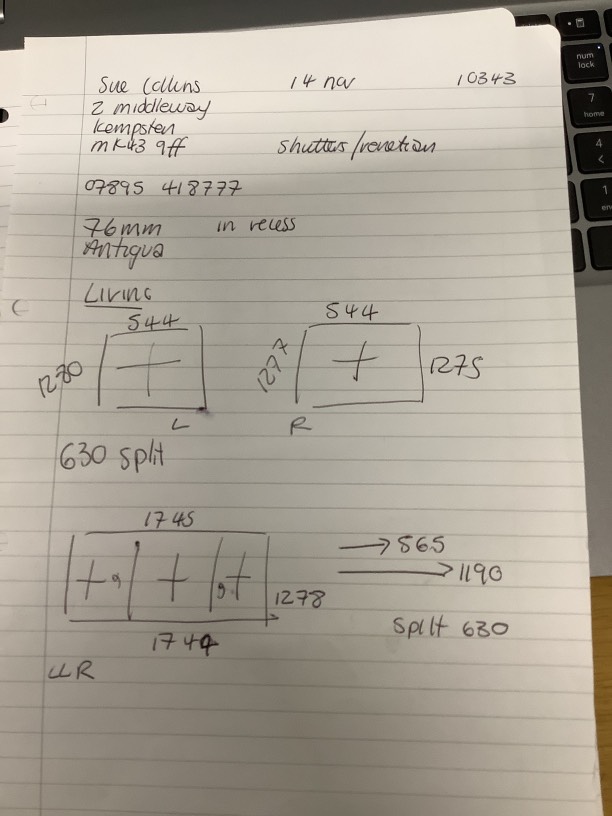 Sue Collins 14 nov 10343
2 middleway
Kempsten
mk43 9ff shutters/renetion
07895 418777
76mm in recess
Antiqua
Living
544 544
1280 1277 1275
L R
630 split
1745
565
1190
1278
split 630
1744
LLR
num
lock
7
home
4
1